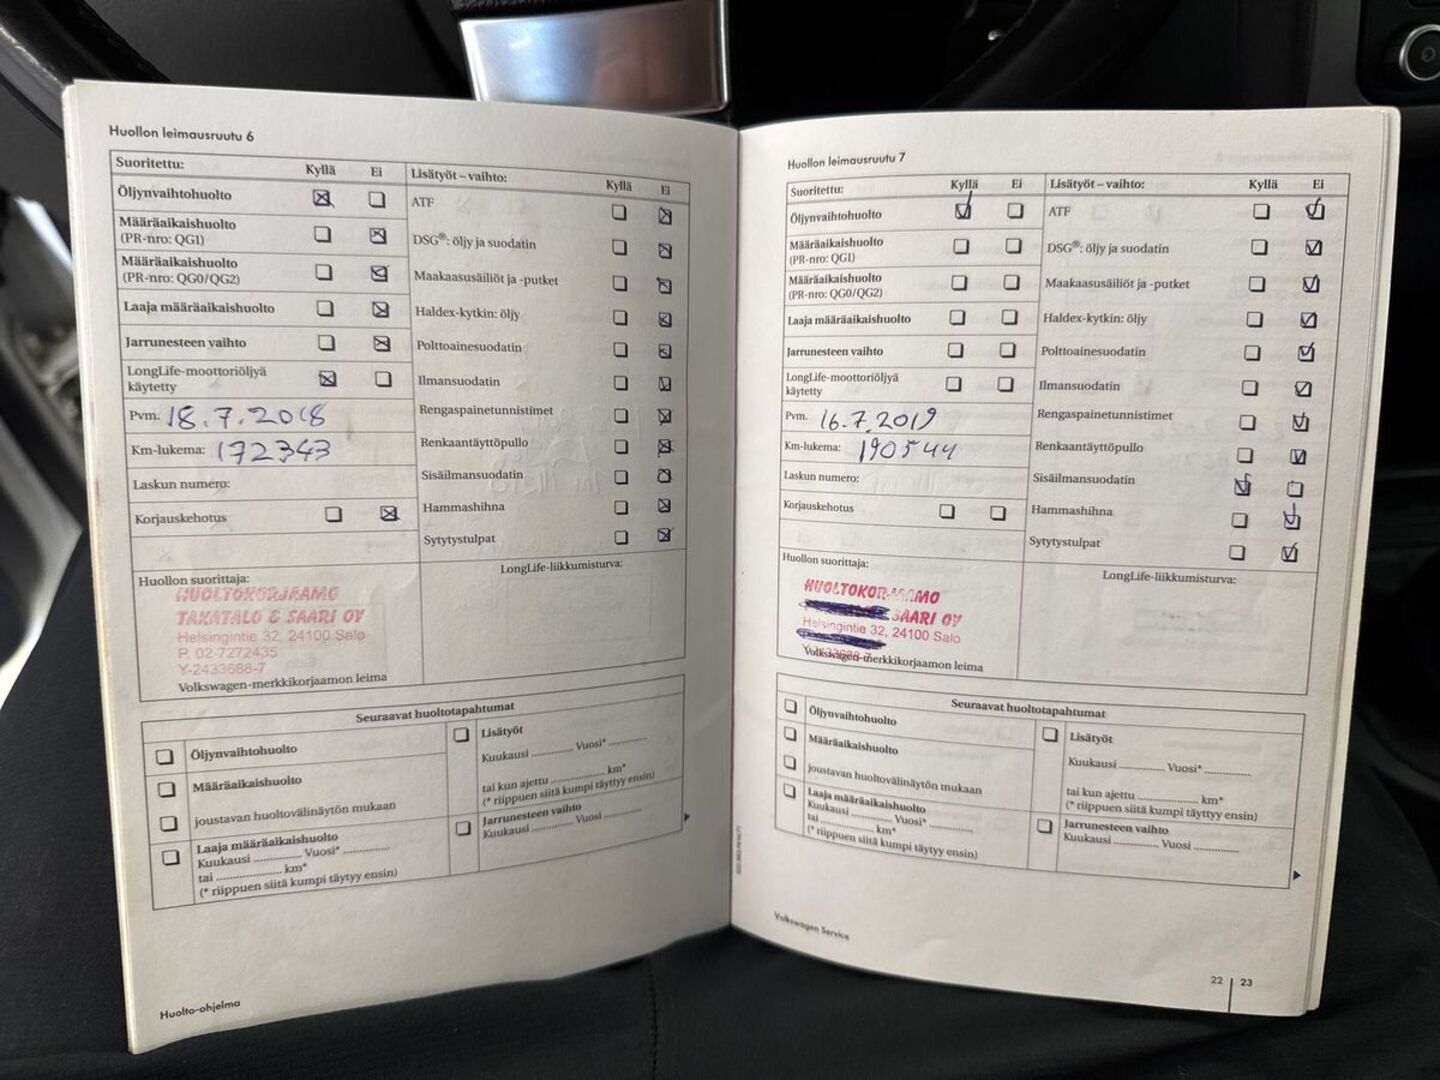 Huollon leimausruutu 6
Suoritettu: Kyllä Ei
Öljynvaihtohuolto
Määräaikaishuolto
(PR-nro: QG1)
Määräaikaishuolto
(PR-nro: QG0/QG2)
Laaja määräaikaishuolto
Jarrunesteen vaihto
LongLife-moottoriöljyä
käytetty
Pvm. 18.7.2018
Km-lukema: 172343
Laskun numero:
Korjauskehotus
Huollon suorittaja:
HUOLTOKORJAAMO
TAKATALO & SAARI OY
Helsingintie 32, 24100 Salo
P. 02-7272435
Y-2433688-7
Volkswagen-merkkikorjaamon leima
Lisätyöt – vaihto: Kyllä Ei
ATF
DSG®: öljy ja suodatin
Maakaasusäiliöt ja -putket
Haldex-kytkin: öljy
Polttoainesuodatin
Ilmansuodatin
Rengaspainetunnistimet
Renkaantäyttöpullo
Sisäilmansuodatin
Hammashihna
Sytytystulpat
LongLife-liikkumisturva:
Seuraavat huoltotapahtumat
Öljynvaihtohuolto
Määräaikaishuolto
joustavan huoltovälinäytön mukaan
Laaja määräaikaishuolto
Kuukausi .............. Vuosi* ..............
tai .................... km*
(* riippuen siitä kumpi täytyy ensin)
Lisätyöt
Kuukausi ............. Vuosi* .............
tai kun ajettu .................. km*
(* riippuen siitä kumpi täytyy ensin)
Jarrunesteen vaihto
Kuukausi ............. Vuosi .............
Huolto-ohjelma
Huollon leimausruutu 7
Suoritettu: Kyllä Ei
Öljynvaihtohuolto
Määräaikaishuolto
(PR-nro: QG1)
Määräaikaishuolto
(PR-nro: QG0/QG2)
Laaja määräaikaishuolto
Jarrunesteen vaihto
LongLife-moottoriöljyä
käytetty
Pvm. 16.7.2019
Km-lukema: 190544
Laskun numero:
Korjauskehotus
Huollon suorittaja:
HUOLTOKORJAAMO
SAARI OY
Helsingintie 32, 24100 Salo
Y-2433688-7
Volkswagen-merkkikorjaamon leima
Lisätyöt – vaihto: Kyllä Ei
ATF
DSG®: öljy ja suodatin
Maakaasusäiliöt ja -putket
Haldex-kytkin: öljy
Polttoainesuodatin
Ilmansuodatin
Rengaspainetunnistimet
Renkaantäyttöpullo
Sisäilmansuodatin
Hammashihna
Sytytystulpat
LongLife-liikkumisturva:
Seuraavat huoltotapahtumat
Öljynvaihtohuolto
Määräaikaishuolto
joustavan huoltovälinäytön mukaan
Laaja määräaikaishuolto
Kuukausi ............. Vuosi* .............
tai .................. km*
(* riippuen siitä kumpi täytyy ensin)
Lisätyöt
Kuukausi ............. Vuosi* .............
tai kun ajettu .................... km*
(* riippuen siitä kumpi täytyy ensin)
Jarrunesteen vaihto
Kuukausi ............. Vuosi .............
Volkswagen Service
22 23